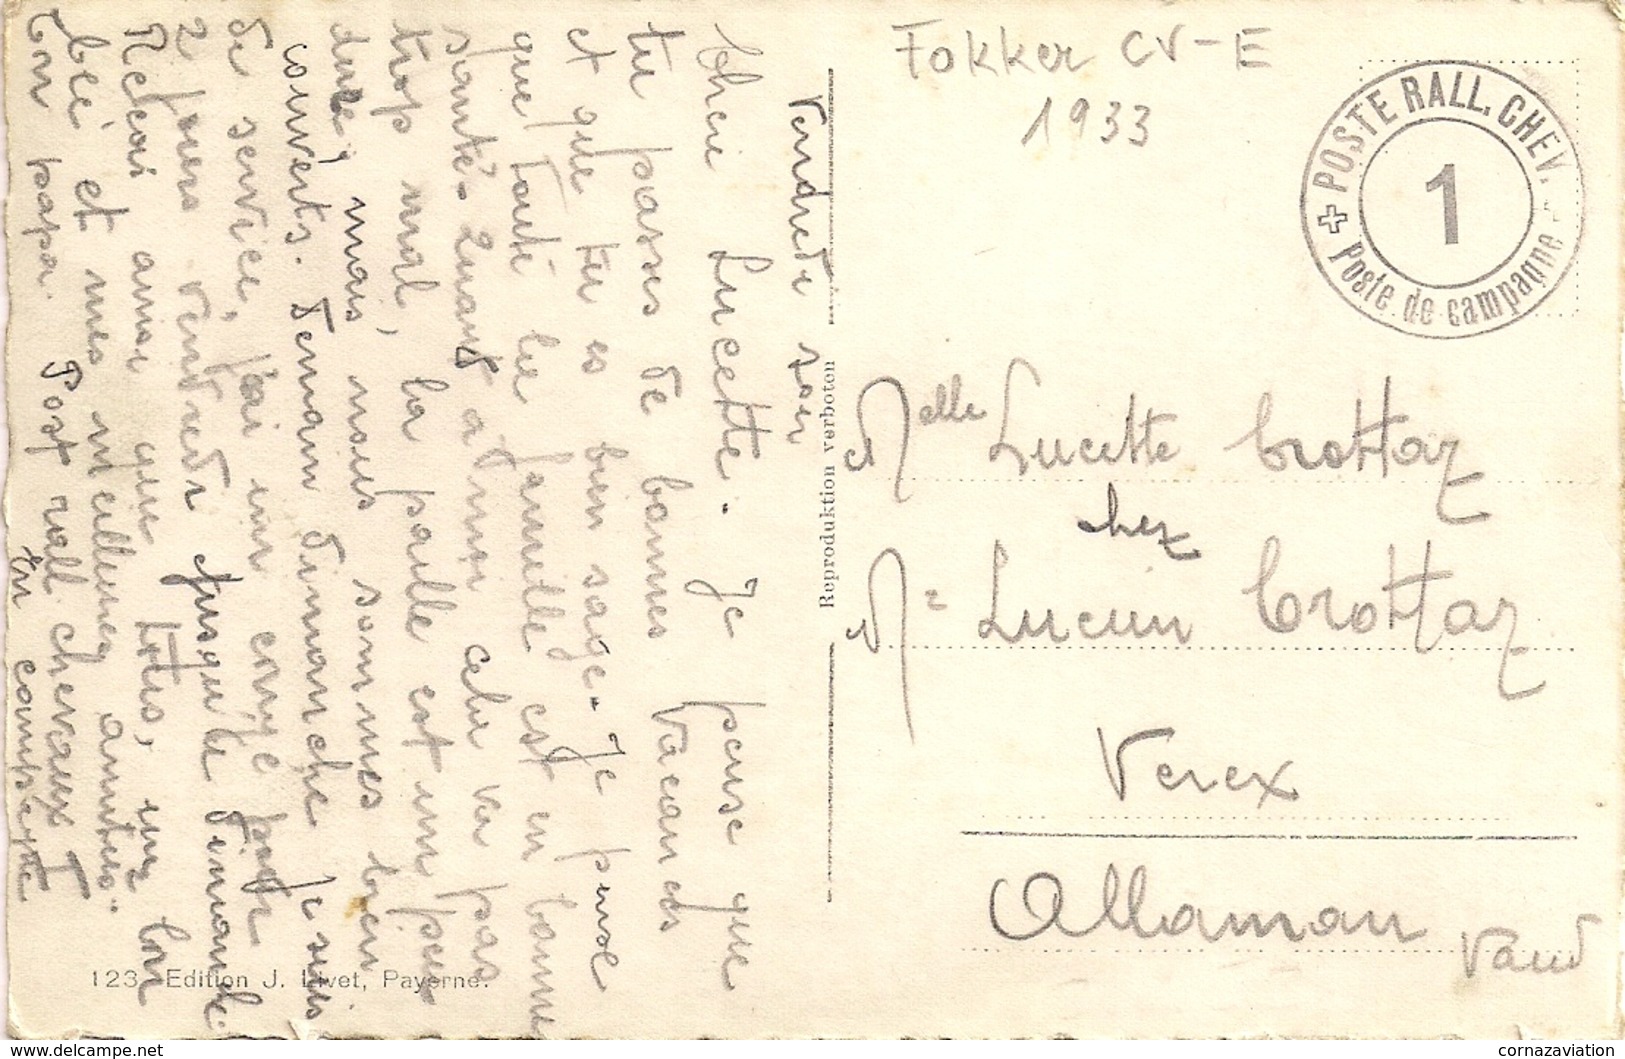 Fokker CV-E
1933
POSTE RALL. CHEV.
1
Poste de campagne
Vendredi soir
Chère Lucette. Je pense que
tu passes de bonnes vacances
et que tu es bien sage. Je pense
que toute la famille est en bonne
santé. Quand à moi cela va pas
trop mal, la paille est un peu
dure, mais nous sommes bien
couverts. Demain dimanche je suis
de service, j'ai eu congé
2 jours vendredi jusqu'à dimanche.
Reçoi ainsi que tous, un bon
bec et mes meilleures amitiés.
Ton papa. Post rall. chevaux 1
En campagne
Melle Lucette Crottaz
chez
Mr Lucien Crottaz
Verex
Allaman
Vaud
Reproduktion verboten
123. Edition J. Livet, Payerne.
cornazaviation